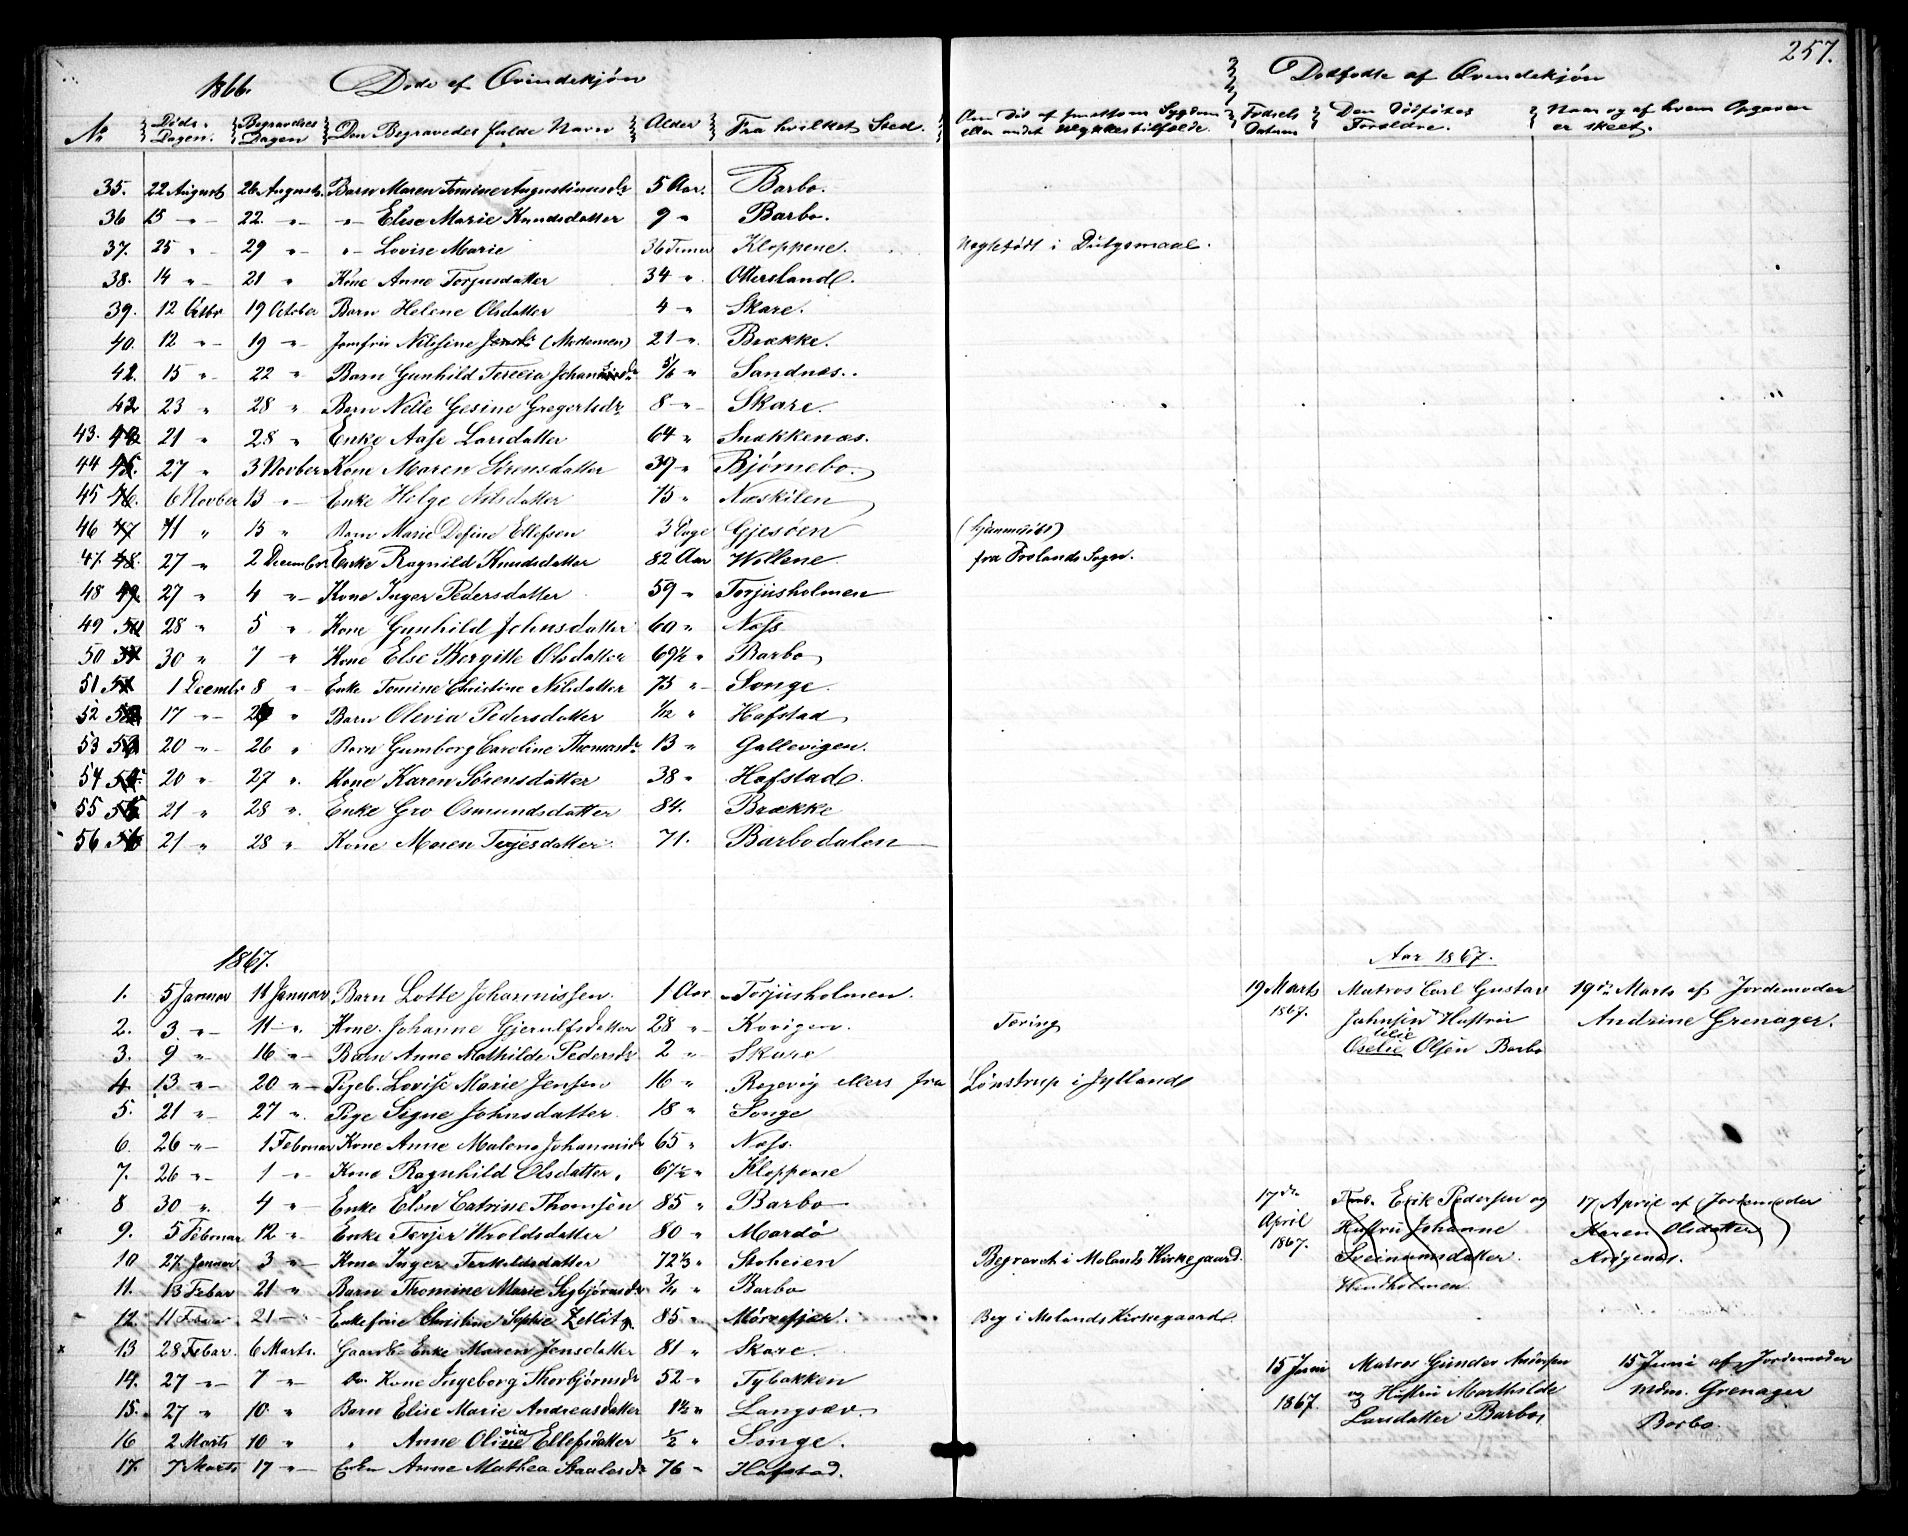 257.
1866. Døde af Qvindekjøn
Dødfødte af Qvindekjøn
No Døds-Dagen. Begravelses Dagen Den Begravedes fulde Navn Alder Fra hvilket Sted. Om Død af smitsom Sygdom eller andet Ulykkestilfælde. Fødsels Datum Den Dødfødtes Forældre. Naar og af hvem Opgaven er skeet.
35. 22 August 26 August. Barn Maren Tomine Augustinusdr 5 Aar. Barbo.
36 15 " 22 " " Elise Marie Knudsdatter 9 " Barbo.
37. 25 " 29 " " Lovise Marie 36 Timer Kloppene. Uægtefødt i Dølgsmaal.
38. 14 " 21 " Kone Anne Torjusdatter 34 " Ottersland.
39. 12 Octbr 19 October Barn Helene Olsdatter 4 " Skare.
40. 12 " 19 " Jomfru Nilsine Jensdr (Madamen) 21 " Brække.
42. 15 " 22 " Barn Gunhild Terecia Johansdr 5/6 " Sandnæs.
42 23 " 28 " Barn Nelle Gesine Gregertsdr 8 " Skare.
43. 21 " 28 " Enke Aase Larsdatter 64 " Snækkenæs.
44 27 " 3 Novber Kone Maren Sørensdatter 39 " Bjørnebo.
45 6 Novber 13 " Enke Helge Nilsdatter 75 " Næskilen
46 11 " 15 " Barn Marie Define Ellefsen 3 Dage Gjesøen (hjemmedøbt)
47. 27 " 2 December Enke Ragnild Knudsdatter 82 Aar Wollene fra Frolands Sogn.
48 27 " 4 " Kone Inger Pedersdatter 59 " Torjusholmen
49 28 " 5 " Kone Gunhild Johnsdatter 60 " Næss
50 30 " 7 " Kone Else Bergitte Olsdatter 69½ " Barbo
51 1 Decembr 8 " Enke Tomine Christine Nilsdatter 73 " Songe.
52 17 " " Barn Olevia Pedersdatter 1/12 " Hafstad
53 20 " 26 " Barn Gumborg Caroline Thomasdr 13 " Gallevigen.
54 20 " 27 " Kone Karen Sørensdatter 38 " Hafstad.
55 21 " 28 " Enke Gro Osmundsdatter 84. Brække
56 21 " 28 " Kone Maren Terjesdatter 71. Barbodalen
1867.
Aar 1867.
1. 5 Januar 11 Januar Barn Lotte Johannissen. 1 Aar Torjusholmen.
2. 3 " 11 " Kone Johanne Gjerulfsdatter 28 " Kovigen. Tæring
3. 9 " 16 " Barn Anne Mathilde Pedersdr 2 " Skare
4. 13 " 20 " Pigeb. Lovise Marie Jensen 16 " Rægevig ellers fra Lønstrup i Jylland
5. 21 " 27 " Pige Signe Johnsdatter 18 " Songe
6. 26 " 1 Februar Kone Anne Malene Johannisdr 65 " Næss.
7. 26 " 1 " Kone Ragnhild Olsdatter. 67½ " Kloppene
x 8 30 " 4 " Enke Elen Catrine Thomsen 85 " Barbo
x 9. 5 Februar 12 " Enke Terjer Wroldsdatter 80 " Mærdø
10 27 Januar 3 " Kone Inger Terkildsdatter 72 1/3 " Stoheien Begravet i Molands Kirkegaard.
11. 13 Febar 21 " Barn Thomine Marie Sigbjørnsdr 3/4 " Barbo
12. 11 21 " Enkefrue Christine Sophie Zetlitz 85 " Mørefjær. Beg i Molands Kirkegaard
x 13 28 Febar. 6 Marts. Gaardb. Enke Maren Jensdatter 81 " Skare.
14. 27 " 7 " Kone Ingeborg Thorbjørnsdr 52 " Tybakken
15. 27 " 10. " Barn Elise Marie Andreasdatter 1½ " Langsæv.
16 2 Marts 10 " " Anne Olivia Ellefsdatter ½ " Songe.
17. 7 Marts 17 " Enke Anne Mathea Staalesdr 76 " Hafstad.
19 Marts 1867. Matros Carl Gustav Johnsen Hustru Oselie Olsen Barbo
19de Marts af Jordemoder Andrine Grenager.
17de April 1867. Erik Pedersen og Hustru Johanne Sveinumsdatter Windholmen
17 April af Jordemoder Karen Olsdatter Krøgenæs.
15 Juni 1867. Matros Gunder Andersen og Hustru Marthilde Larsdatter Barbo,
15 Juni af Jordemoder Mdm. Grenager Barbo